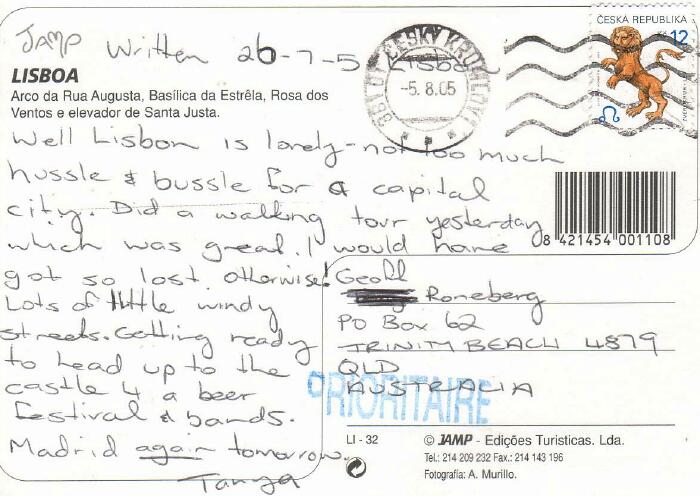 JAMP Written 26-7-5 Lisbon
LISBOA
Arco da Rua Augusta, Basílica da Estrêla, Rosa dos
Ventos e elevador de Santa Justa.
Well Lisbon is lovely - not too much
hussle & bussle for a capital
city. Did a walking tour yesterday
which was great. I would have
got so lost otherwise!
Lots of little windy
streets. Getting ready
to head up to the
castle 4 a beer
festival & bands.
Madrid again tomorrow.
Tanya
ČESKÝ KRUMLOV 1
-5.8.05
ČESKÁ REPUBLIKA
Kč 12
8 421454 001108
Geoff
Roneberg
PO Box 62
TRINITY BEACH 4879
QLD
AUSTRALIA
PRIORITAIRE
LI - 32
© JAMP - Edições Turisticas. Lda.
Tel.: 214 209 232 Fax.: 214 143 196
Fotografia: A. Murillo.